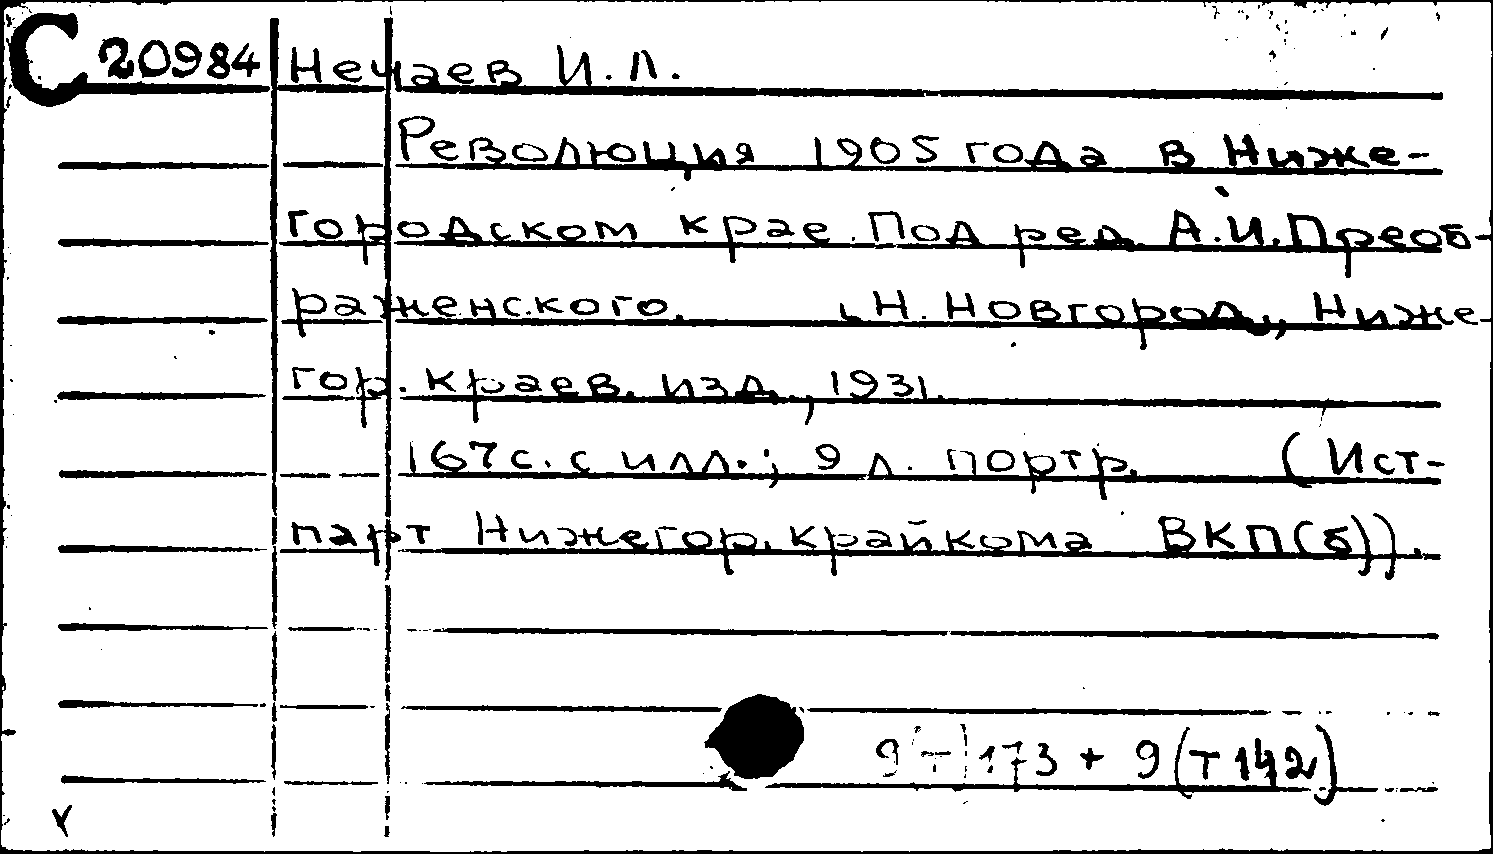 С 20984 Нечаев И. Л.
Революция 1905 года в Ниже-
городском крае. Под ред. А.И.Преоб-
раженского. Н. Новгород, Ниже-
гор. краев. изд., 1931.
167 с. с илл.; 9 л. портр. (Ист-
парт Нижегор. крайкома ВКП(б)).
9(Т)173 + 9(Т142)